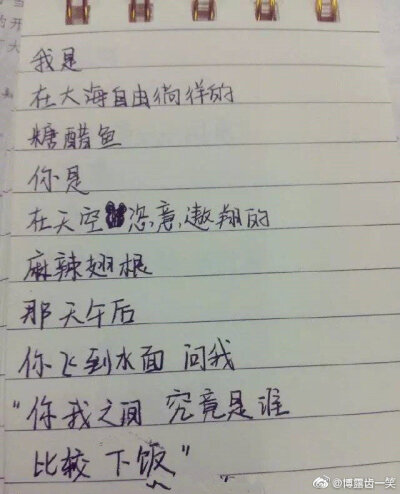 我是
在大海自由徜样的
糖醋鱼
你是
在天空恣意遨翔的
麻辣翅根
那天午后
你飞到水面 问我
“你我之间 究竟是谁
比较 下饭”
@博露齿一笑